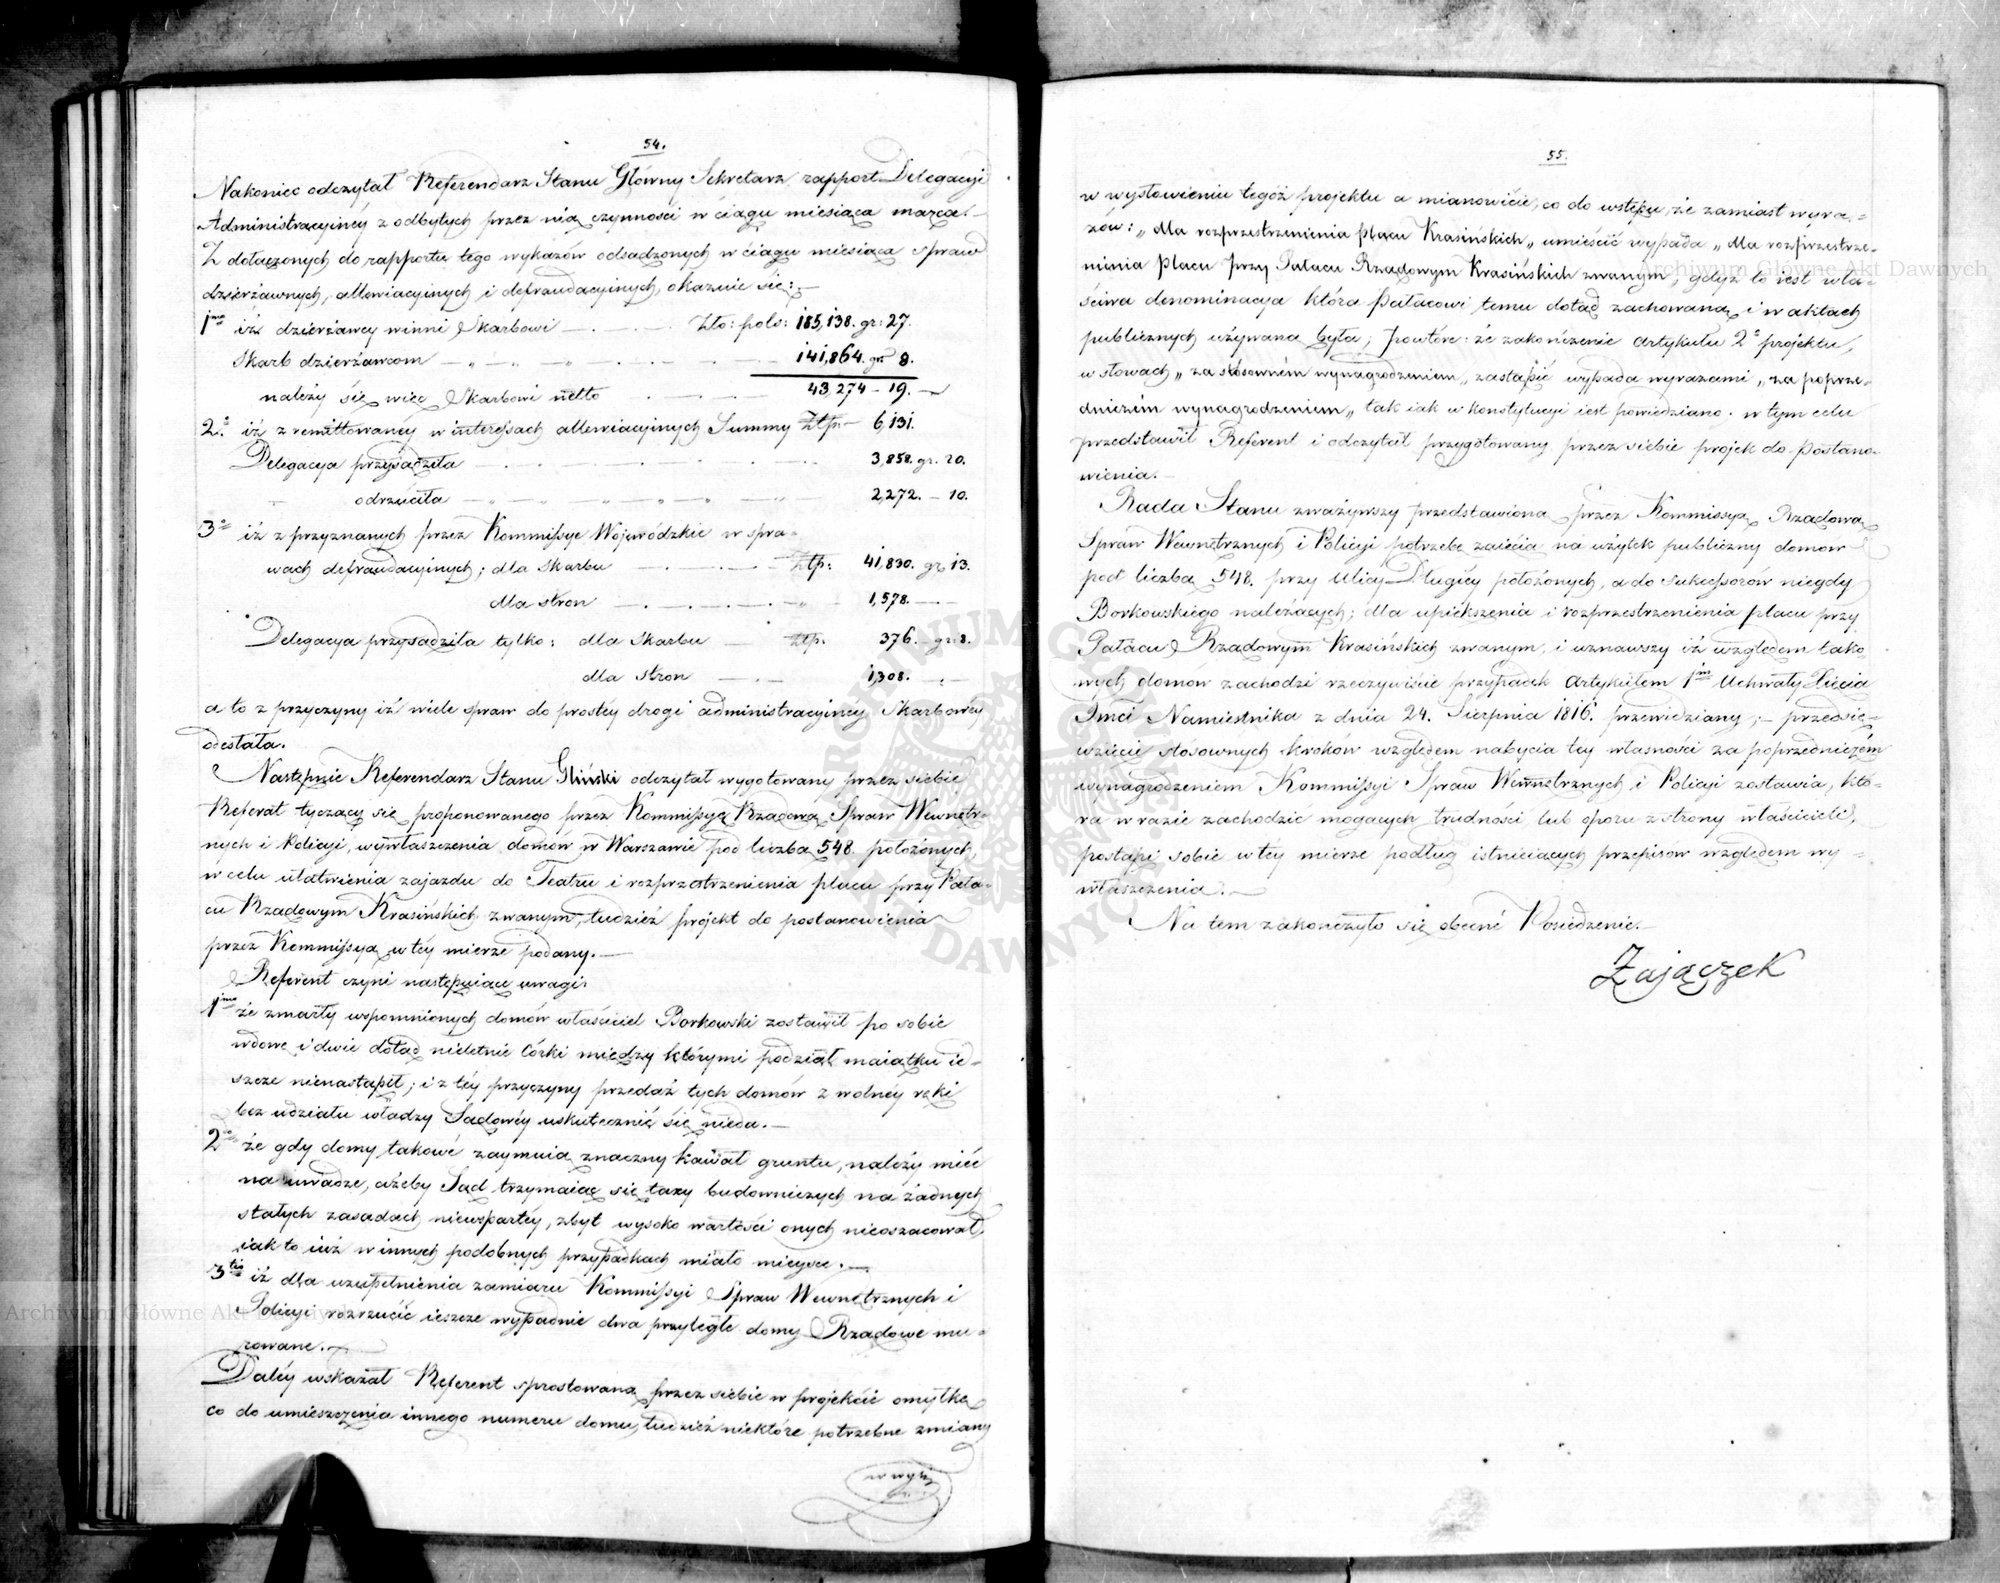 54.
Nakoniec odczytał Referendarz Stanu Główny Sekretarz rapport Delegacyi
Administracyinéy z odbytych przez nią czynności w ciągu miesiąca marca.
Z dołączonych do rapportu tego wykazów odsądzonych w ciągu miesiąca spraw
dzierżawnych, allewiacyinych i defraudacyinych, okazuie się:
1mo iż dzierżawcy winni Skarbowi — Zło: pols: 185,138. gr: 27.
Skarb dzierżawcom — 141,864. gr 8.
należy się więc Skarbowi netto — 43,274 — 19.
2do iż z remittowanéy w interessach allewiacyinych Summy Złp. 6,131.
Delegacya przysądziła — 3,858. gr. 20.
odrzuciła — 2,272. — 10.
3o iż z przyznanych przez Kommissye Wojewódzkie w spra=
wach defraudacyinych; dla Skarbu — Złp. 41,830. gr 13.
dla stron — 1,578.
Delegacya przysądziła tylko: dla Skarbu — Złp. 376. gr. 8.
dla stron — 1,308.
a to z przyczyny iż wiele spraw do prostey drogi administracyiney Skarbowéy
odesłała.
Następnie Referendarz Stanu Gliński odczytał wygotowany przez siebie
Referat tyczący się proponowanego przez Kommissyą Rządową Spraw Wewnętrz=
nych i Policyi, wywłaszczenia domów w Warszawie pod liczbą 548 położonych,
w celu ułatwienia zajazdu do Teatru i rozprzestrzenienia placu przy Pała=
cu Rządowym Krasińskich zwanym, tudzież projekt do postanowienia
przez Kommissyą w téy mierze podany.
Referent czyni następuiące uwagi:
1mo że zmarły wspomnionych domów właściciel Borkowski zostawił po sobie
wdowę i dwie dotąd nieletnie Córki między którymi podział maiątku ie=
szcze nienastąpił; i z téy przyczyny przedaż tych domów z wolnéy ręki
bez udziału władzy Sądowéy uskutecznić się nieda.
2o że gdy domy takowe zaymuią znaczny kawał gruntu, należy mieć
na uwadze, ażeby Sąd trzymaiąc się taxy budowniczych na żadnych
stałych zasadach niewspartéy, zbyt wysoko wartości onych nieoszacował,
iak to iuż w innych podobnych przypadkach miało mieysce.
3tio iż dla uzupełnienia zamiaru Kommissyi Spraw Wewnętrznych i
Policyi rozrzucić ieszcze wypadnie dwa przyległe domy Rządowe mu=
rowane.
Daléy wskazał Referent sprostowaną przez siebie w projekcie omyłkę
co do umieszczenia innego numeru domu, tudzież niektóre potrzebne zmiany
w wysł:
55.
w wysłowieniu tegóż projektu a mianowicie, co do wstępu, że zamiast wyra=
zów: „dla rozprzestrzenienia placu Krasińskich„ umieścić wypada „dla rozprzestrze=
nienia placu przy Pałacu Rządowym Krasińskich zwanym; gdyż to iest wła=
ściwa denominacya która Pałacowi temu dotąd zachowaną i w aktach
publicznych używana była; powtóre: że zakończenie artykułu 2o projektu,
w słowach „za stósownem wynagrodzeniem„ zastąpić wypada wyrazami „za poprze=
dniczém wynagrodzeniem„ tak iak w konstytucyi iest powiedziano. w tym celu
przedstawił Referent i odczytał przygotowany przez siebie projek do Postano=
wienia.
Rada Stanu zważywszy przedstawioną przez Kommissyą Rządową
Spraw Wewnętrznych i Policyi potrzebę zaięcia na użytek publiczny domów
pod liczbą 548. przy Ulicy Długiéy położonych, a do sukcessorów niegdy
Borkowskiego należących; dla upiększenia i rozprzestrzenienia placu przy
Pałacu Rządowym Krasińskich zwanym, i uznawszy iż względem tako=
wych domów zachodzi rzeczywiście przypadek artykułem 1m Uchwały Xięcia
Jmci Namiestnika z dnia 24. Sierpnia 1816. przewidziany; — przedsię=
wzięcie stósownych kroków względem nabycia téy własności za poprzedniczém
wynagrodzeniem Kommissyi Spraw Wewnętrznych i Policyi zostawia, któ=
ra w razie zachodzić mogących trudności lub oporu z strony właścicieli,
postąpi sobie w téy mierze podług istnieiących przepisów względem wy=
właszczenia.
Na tem zakończyło się obecné Posiedzenie.
Zajączek
ARCHIWUM GŁÓWNE AKT DAWNYCH
Archiwum Główne Akt Dawnych
Archiwum Główne Akt Dawnych